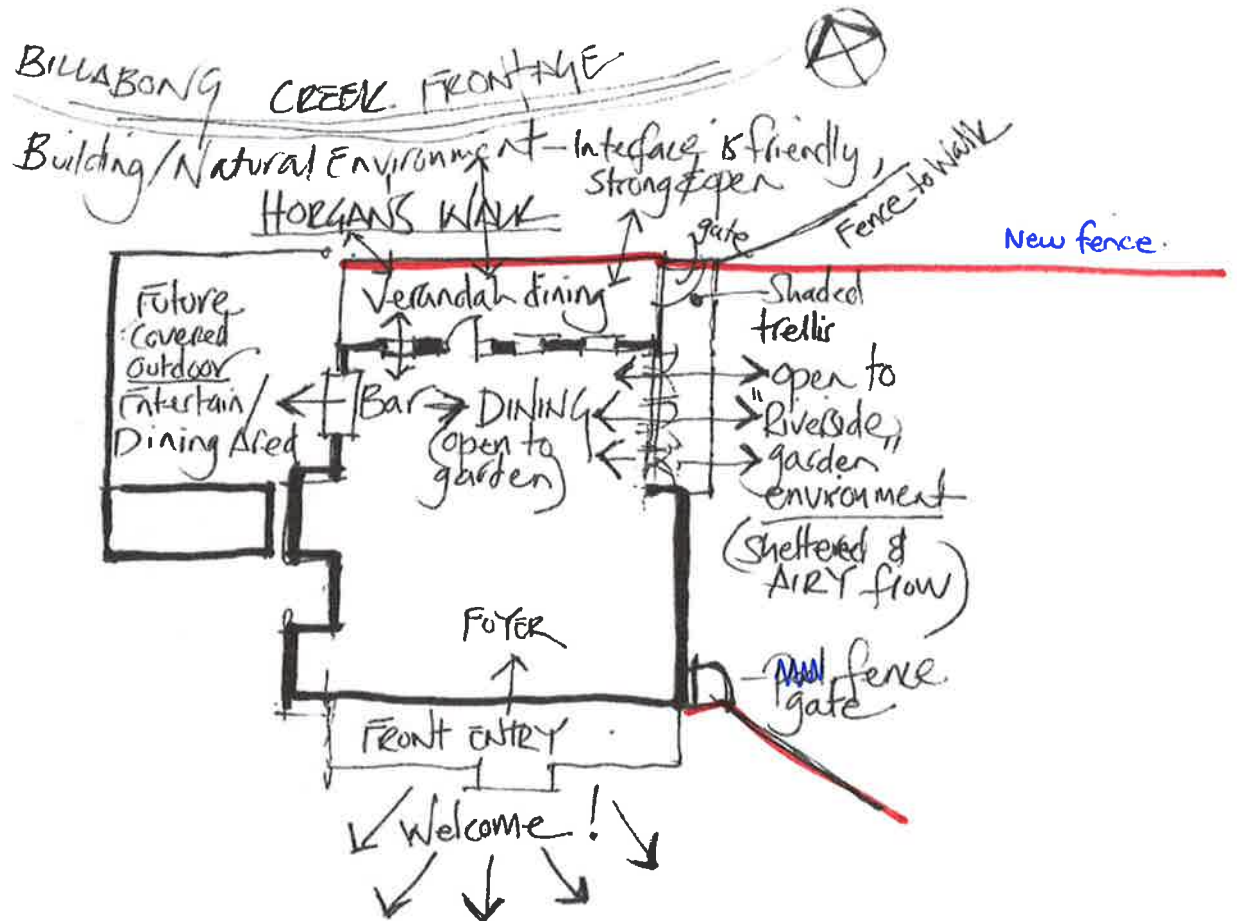 BILLABONG CREEK FRONTAGE
Building/Natural Environment - Interface is friendly,
strong & open
HORGANS WALK
gate
Fence to Walk
New fence.
Verandah dining
Shaded
trellis
Future
Covered
Outdoor
Entertain/
Dining Area
Bar
DINING
(open to
garden)
open to
"Riverside"
garden
environment
(sheltered &
AIRY flow)
FOYER
fence
gate
FRONT ENTRY
Welcome!